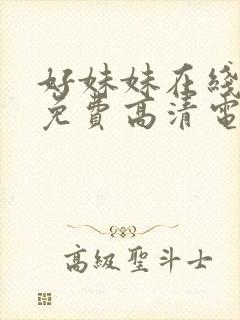 好妹妹在线
免費高清電
高級聖斗士